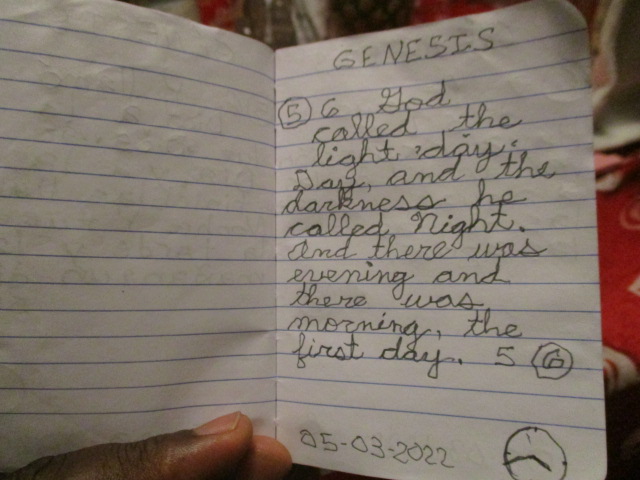 GENESIS
5 6 God
called the
light day.
Day, and the
darkness he
called Night.
And there was
evening and
there was
morning, the
first day. 5 6
05-03-2022